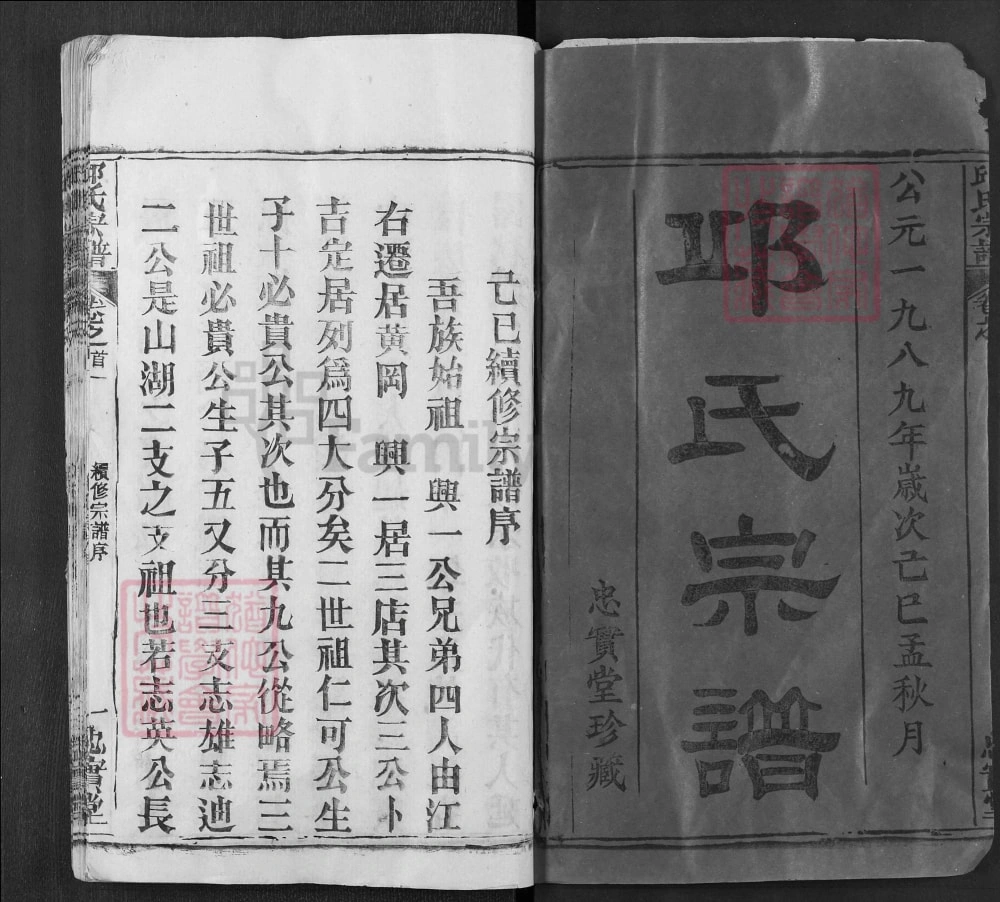 公元一九八九年歲次己巳孟秋月
邱氏宗譜
忠實堂珍藏
邱氏宗譜
己巳續修宗譜序
吾族始祖 興一公兄弟四人由江
右遷居黃岡 興一居三店其次三公卜
吉定居列為四大分矣二世祖仁可公生
子十必貴公其次也而其九公從略焉三
世祖必貴公生子五又分三支志雄志迪
二公是山湖二支之支祖也若志英公長
邱氏宗譜
卷之首
續修宗譜序
一
忠實堂